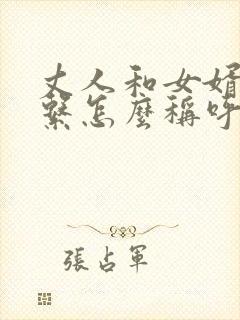 丈人和女婿
繫怎麼稱呼
張占軍